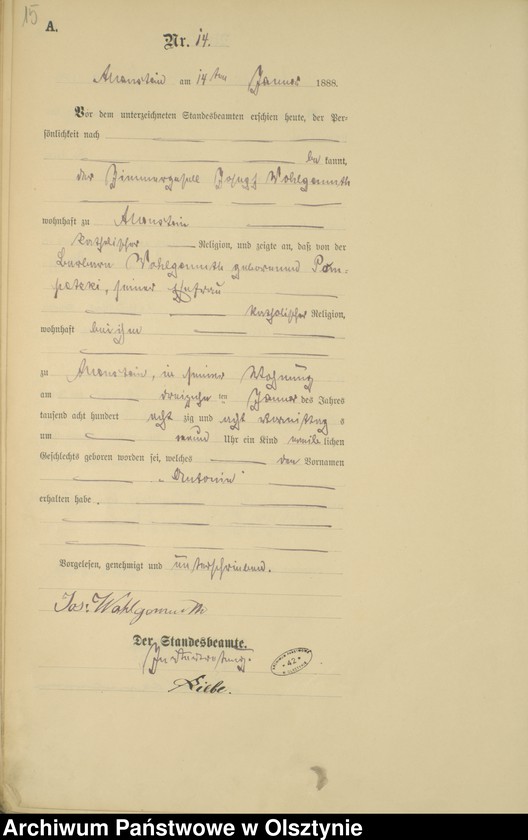 15
A.
Nr. 14.
Allenstein am 14ten Januar 1888.
Vor dem unterzeichneten Standesbeamten erschien heute, der Per-
sönlichkeit nach
be kannt,
der Zimmergesell Joseph Wohlgemuth
wohnhaft zu Allenstein
katholischer Religion, und zeigte an, daß von der
Barbara Wohlgemuth geborenen
seiner Ehefrau
katholischer Religion,
wohnhaft bei ihm
zu Allenstein, in seiner Wohnung
am dreizehn ten Januar des Jahres
tausend acht hundert acht zig und acht Vormittag s
um neun Uhr ein Kind weib lichen
Geschlechts geboren worden sei, welches den Vornamen
„Antonie“
erhalten habe.
Vorgelesen, genehmigt und unterschrieben.
Jos: Wohlgemuth
Der Standesbeamte.
In Vertretung.
42
Archiwum Państwowe w Olsztynie